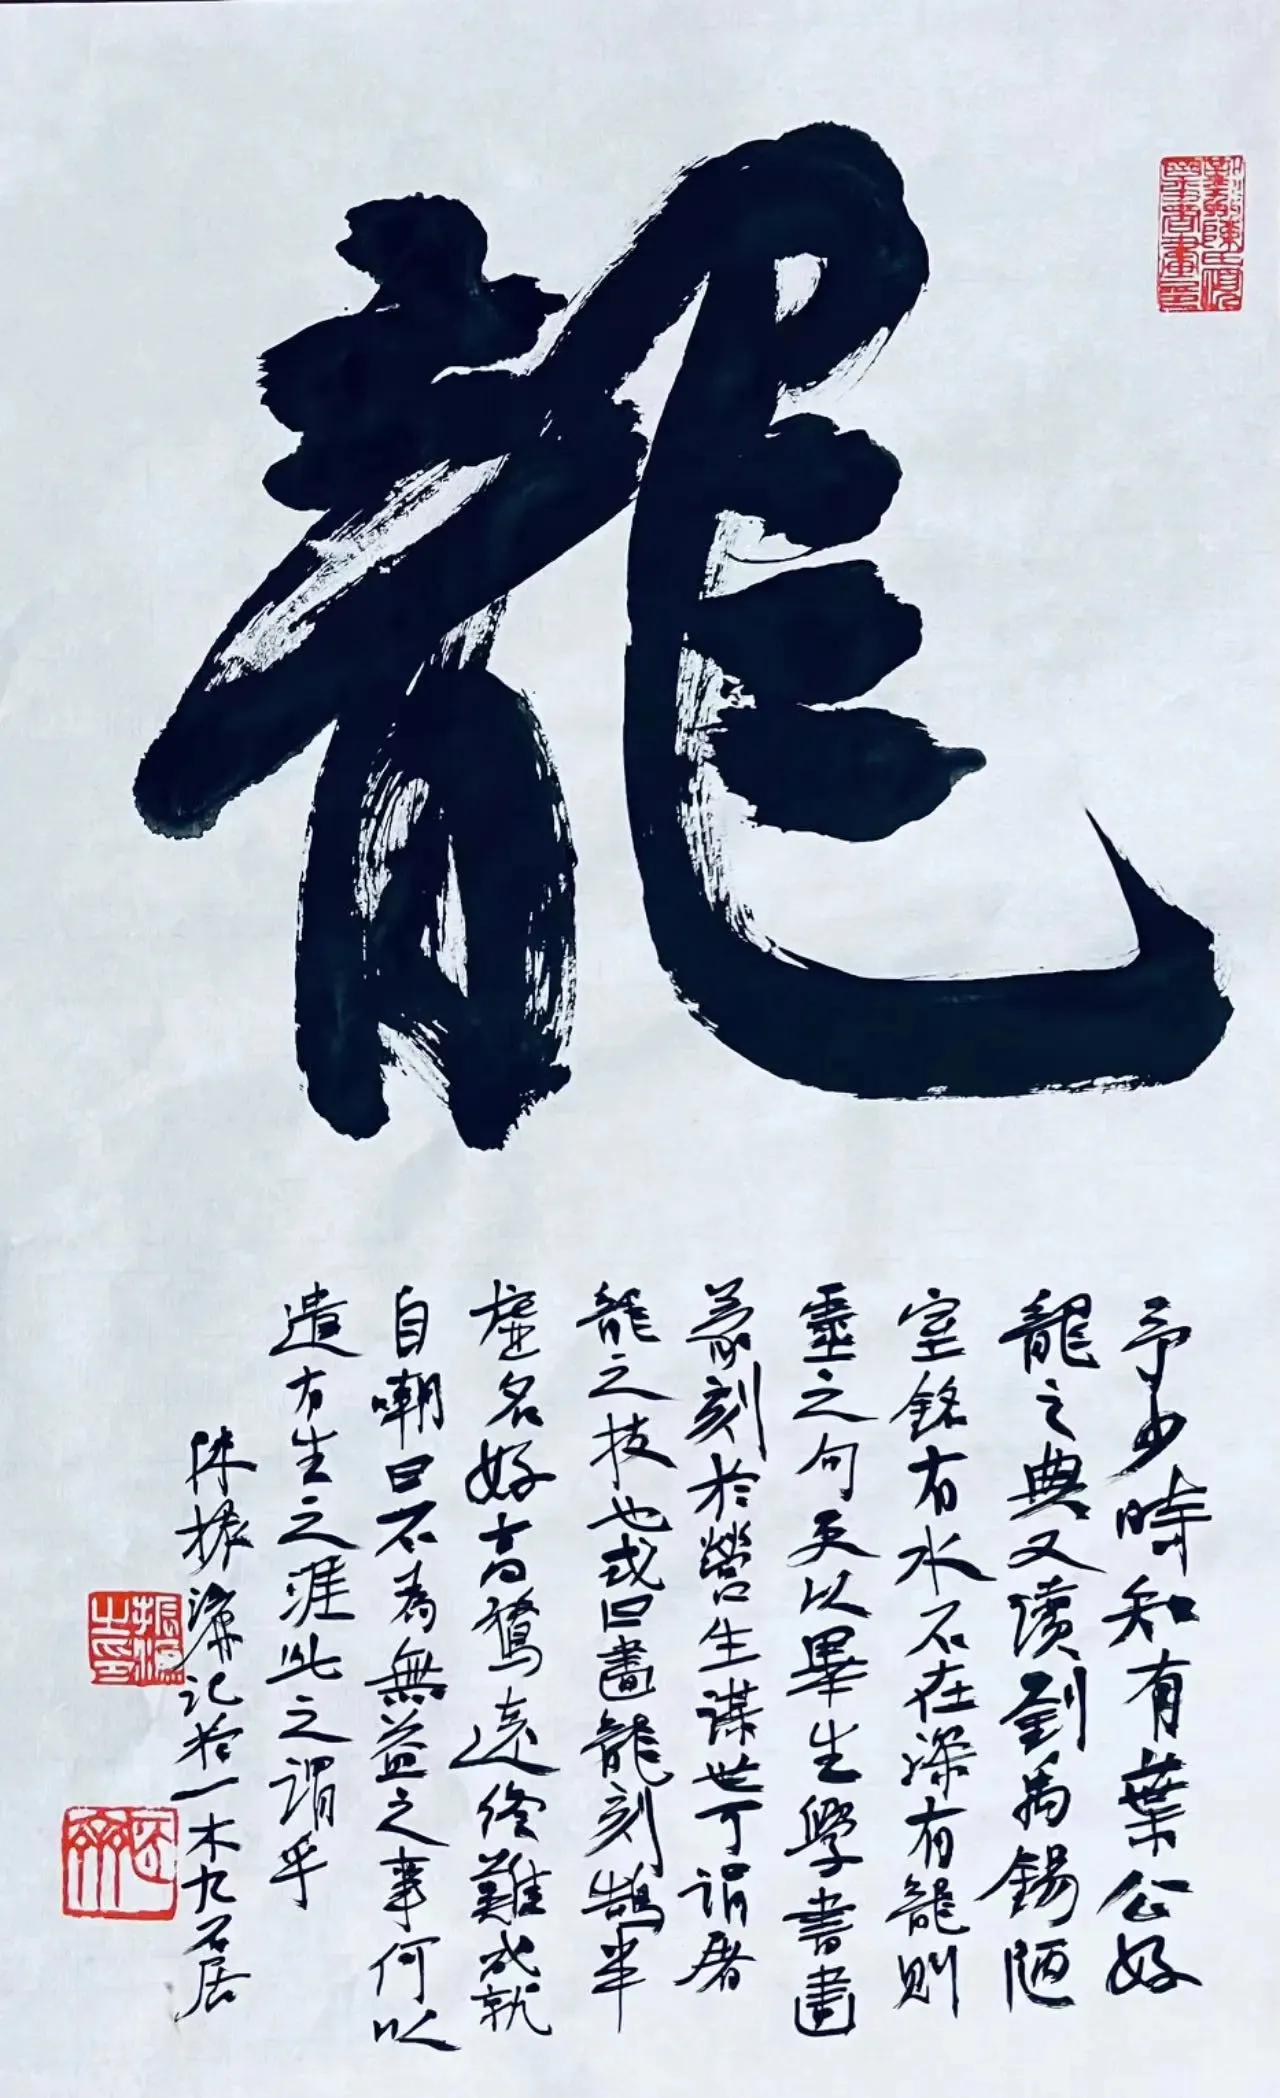 龍
予少時知有葉公好
龍之典又讀到禹錫陋
室銘有水不在深有龍則
靈之句天以畢生學書畫
篆刻於營生謀世可謂屠
龍之技也或曰畫龍刻鵠半
虛名好高騖遠終難成就
自嘲曰不為無益之事何以
遣有生之涯此之謂乎
陳振濂記於一木九石居
振濂
之印